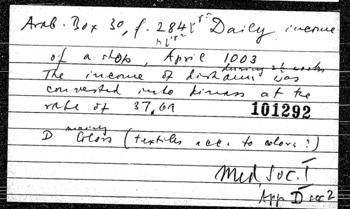 Arab. Box 30, f. 284 Daily income
of a shop, April 1003
during 2½ weeks
The income of dirhams was
converted into dinars at the
rate of 37,69
101292
mainly
D Colors (textiles acc. to colors?)
Med Soc. I
App D sec 2